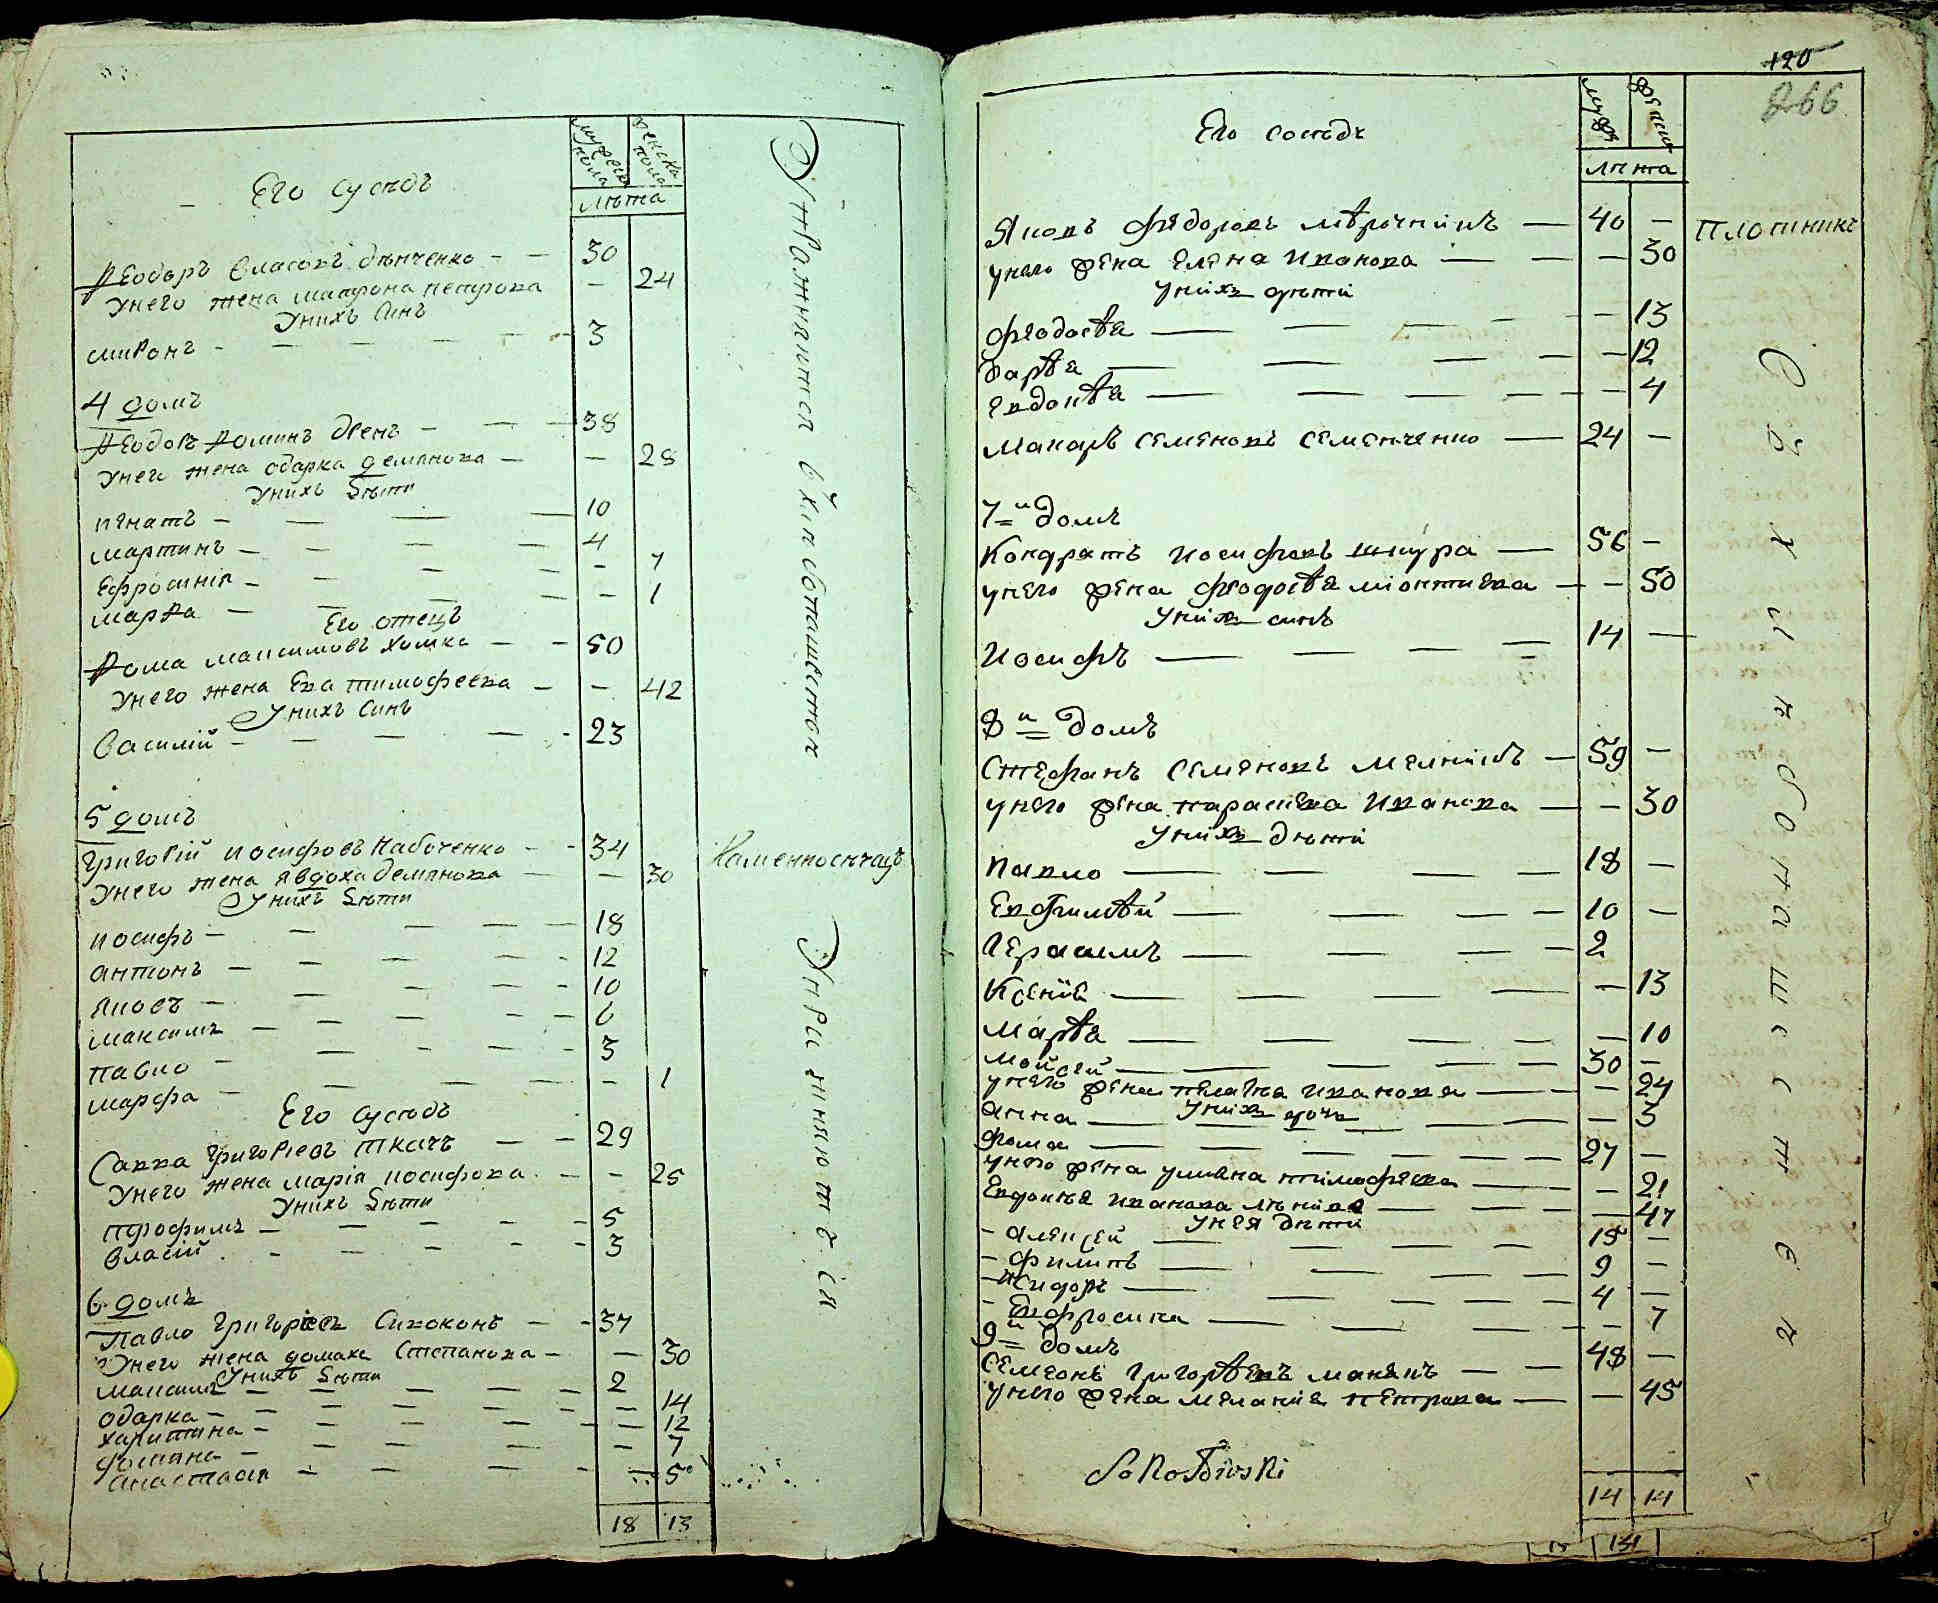 Его сусѣдъ
мужеска пола
женска пола
лѣта
Ѳеодоръ Власовъ Дѣнченко - - 30
Унего жена матрона петрова - 24
Унихъ Синъ
миронъ - - - - - 3
4 домъ
Ѳеодоръ Ѳоминъ - - - 38
Унего жена одарка демянова - - 28
Унихъ Дѣти
игнатъ - — — — 10
мартинъ - - - - 4
Ефросинія - - - - 7
марѳа - - - - 1
Его отецъ
Ѳома максимовъ хомка - - 50
Унего жена Ева тимофеева - - 42
Унихъ Синъ
Василій - - - - 23
5 домъ
Григорій иосифовъ Набоченко - - 34
Унего жена явдоха Демянова - 30
Унихъ Дѣти
иосифъ - - - - 18
антонъ - - - - 12
яковъ - - - - 10
максимъ - - - - 6
павло - - - - 3
марфа - - - - 1
Его Сусѣдъ
Савка Григоріевъ ткачъ - - 29
Унего жена марія иосифова - - 25
Унихъ Дѣти
трофимъ - - - - 5
власій - - - - 3
6 домъ
Павло Григоріевъ Сивоконъ - - 37
Унего жена домаха Степанова - - 30
Унихъ Дѣти
максимъ - - - - 2
одарка - - - - 14
харитина - - - - 12
- - - - 7
анастасія - - - - 5
18 13
Упражняются в хлебопашествѣ
Каменносѣчацъ
120
266
Его сосѣдъ
лѣта
Яковъ Фядоровъ мѣрочникъ — 40 —
унего жена Елена Иванова — — — 30
унихъ дѣти
Фяодосѣя — — — — — 13
Варѣа — — — — 12
Евдокѣя — — — — — 4
Макаръ Семеновъ Семенченко — 24 —
7й домъ
Кондратъ Иосифовъ шкура — 56 —
унего жена Феодосѣя — — 50
унихъ синъ
Иосифъ — — — — 14 —
8й домъ
Стефанъ Семеновъ Мелникъ — 59 —
унего жена параскева Иванова — — 30
унихъ дѣти
Павло — — — — 18 —
Евфимѣй — — — — 10 —
Герасимъ — — — 2
Ксенія — — — — 13
Марѣа — — — — — 10
Мойсей — — — — 30 —
унего жена пелагѣя Иванова — — 24
унихъ дочь
анна — — — — — 3
фома — — — — — 27 —
унего жена уляна тимофеева — — 21
Евдокѣя Иванова — — — 47
унея дѣти
- алексей — — — 15 —
- филипъ — — — 9 —
- Исидоръ — — — 4 —
- Евфросина — — — 7
9й домъ
Семеонъ Григорѣевъ — — 48 —
унего жена меланіа петрова — — 45
14 14
Плотникъ